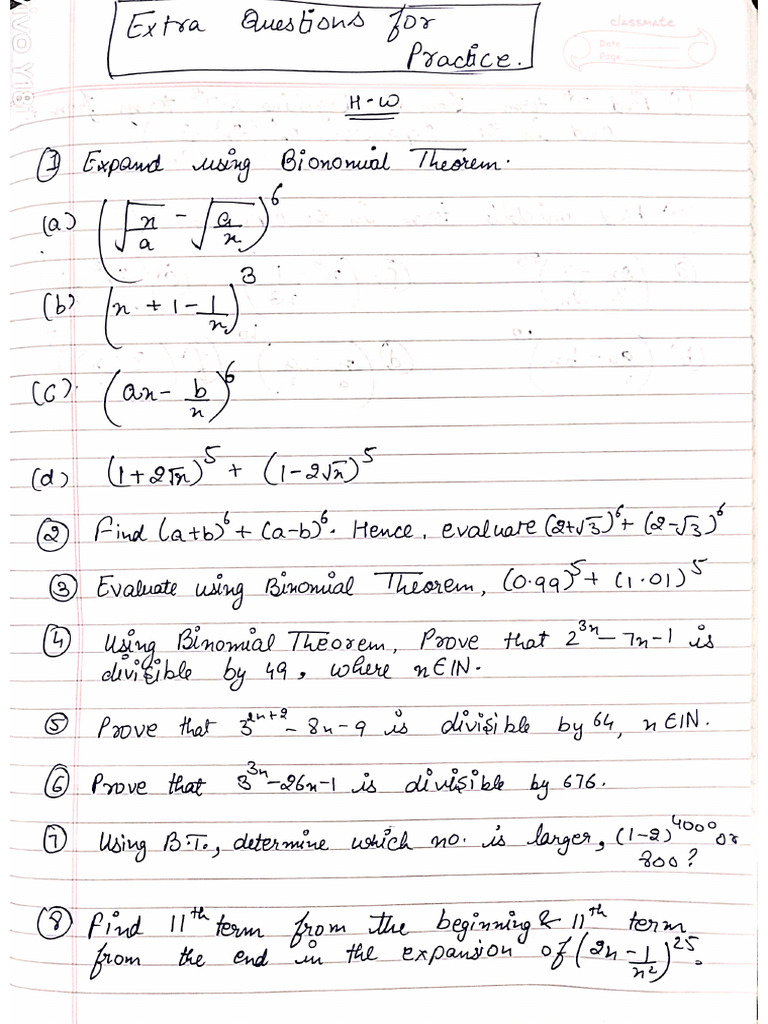 Extra Questions for
Practice.
classmate
Date
Page
vivo Y18
H-W
① Expand using Bionomial Theorem.
(a) (√(x/a) - √(a/x))^6
(b) (x + 1 - 1/x)^3
(c) (ax - b/x)^6
(d) (1+2√x)^5 + (1-2√x)^5
② Find (a+b)^6 + (a-b)^6. Hence, evaluate (2+√3)^6 + (2-√3)^6
③ Evaluate using Binomial Theorem, (0.99)^5 + (1.01)^5
④ Using Binomial Theorem, Prove that 2^3n - 7n-1 is
divisible by 49, where n∈IN.
⑤ Prove that 3^2n+2 - 8n-9 is divisible by 64, n∈IN.
⑥ Prove that 3^3n - 26n-1 is divisible by 676.
⑦ Using B.T., determine which no. is larger, (1-2)^4000 or
800?
⑧ Find 11th term from the beginning & 11th term
from the end in the expansion of (2x - 1/x²)^25.